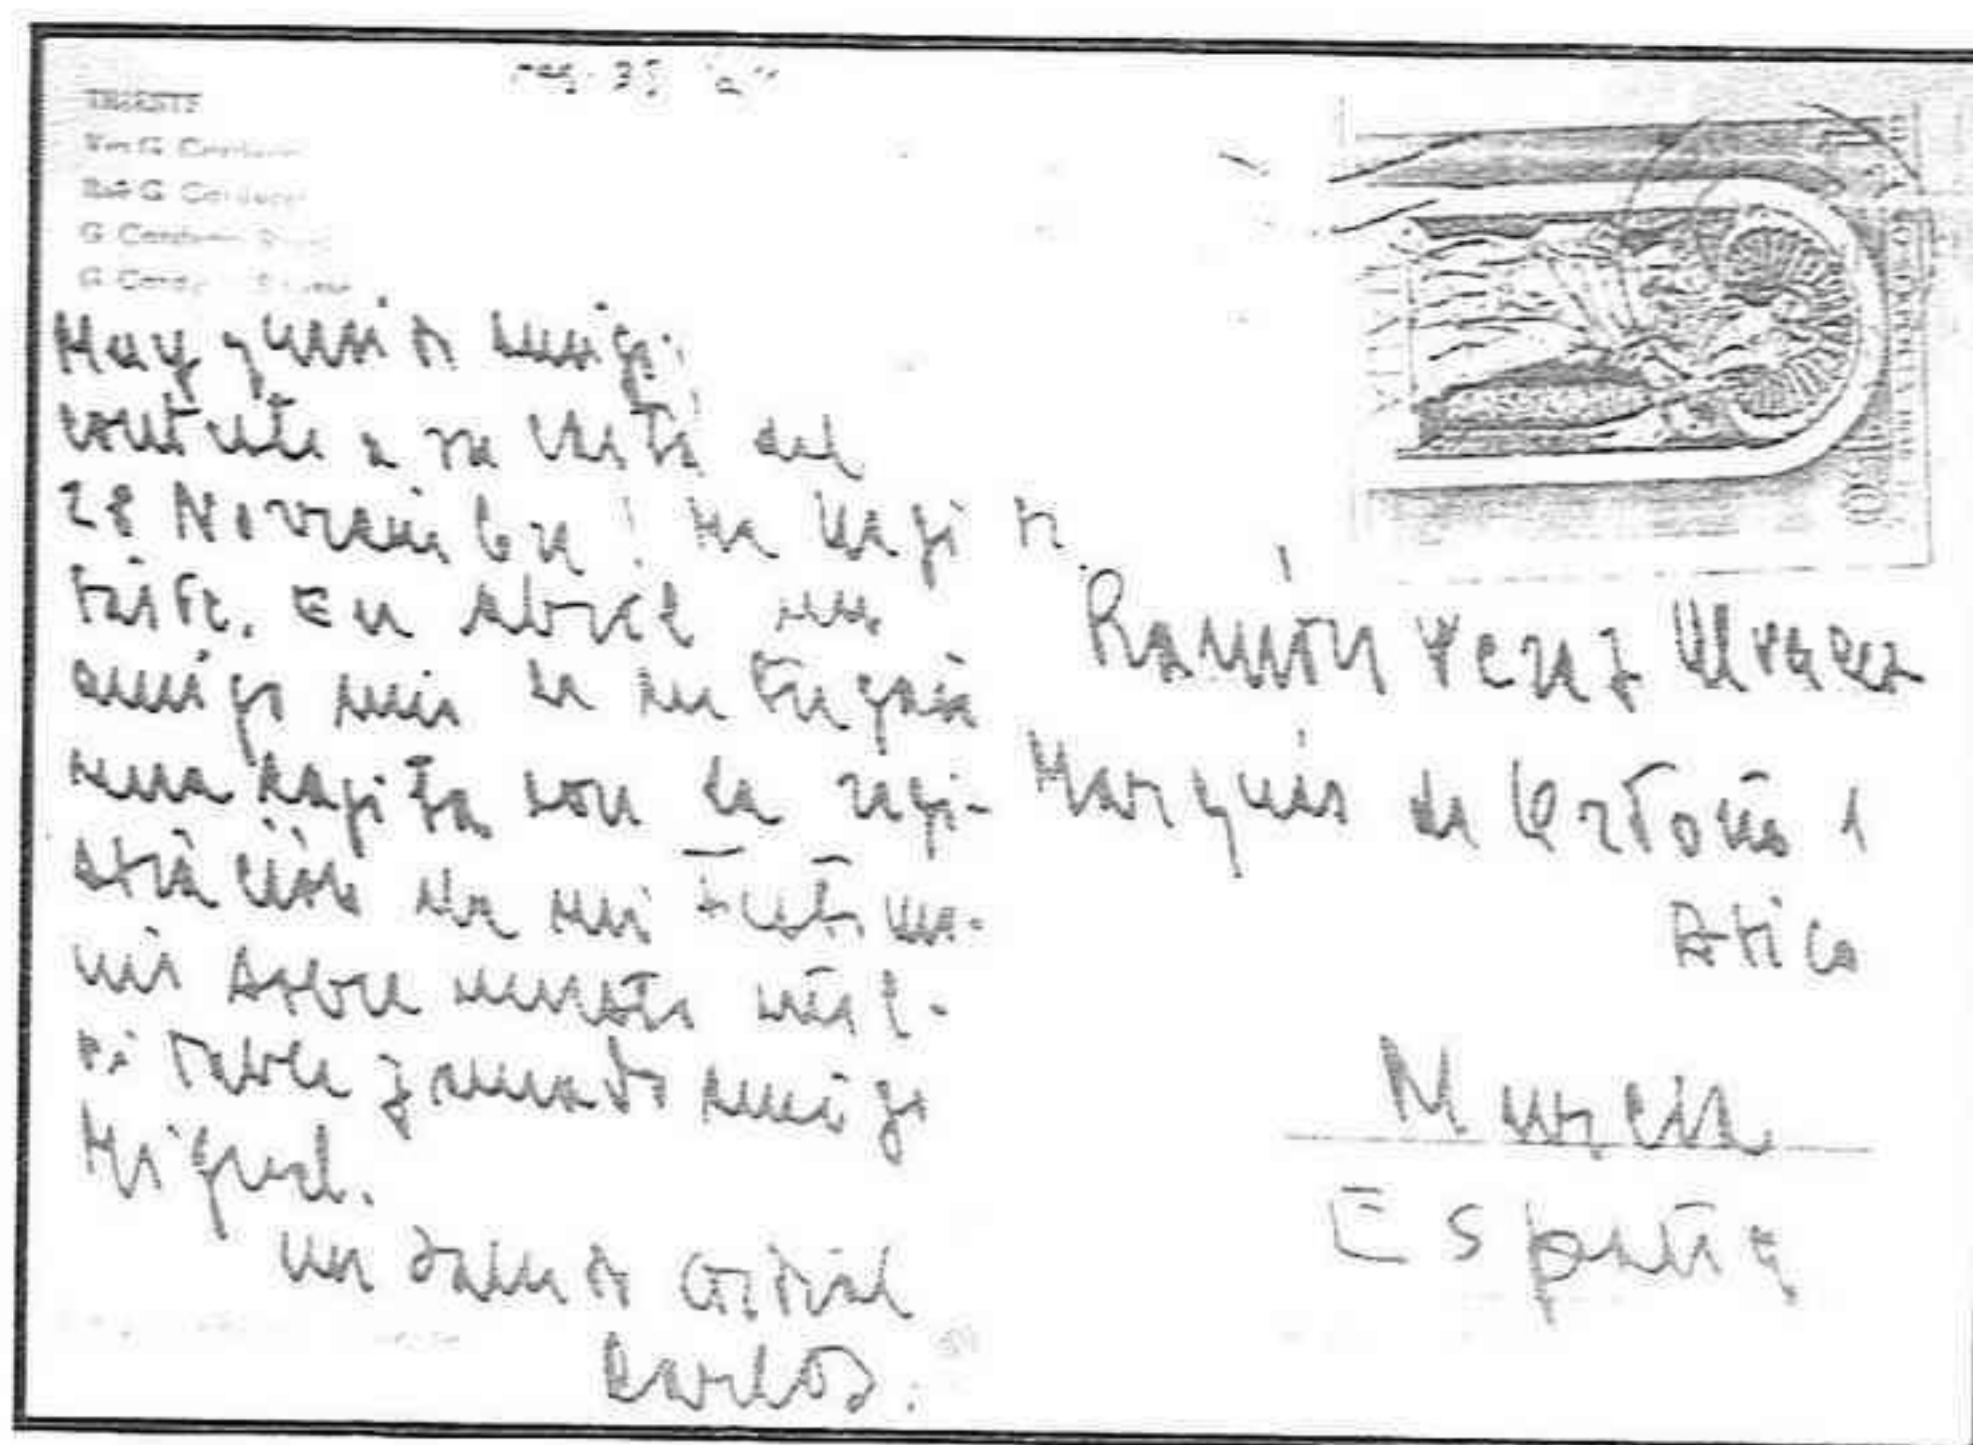 TRIESTE
Via G. Carducci
Rue G. Carducci
G. Carducci
G. Carducci
Muy querido amigo:
conteste a su carta del
28 Noviembre! Ha llegado
tarde. En Abril un
amigo mio le entregará
una cajita con la regi-
stración de mi testimo-
nio sobre nuestro inol-
vidable y amado amigo
Miguel.
un saludo cordial
Carlos.
Ramón Perez Alvarez
Marqués de Ordoño 1
Atico
Murcia
España